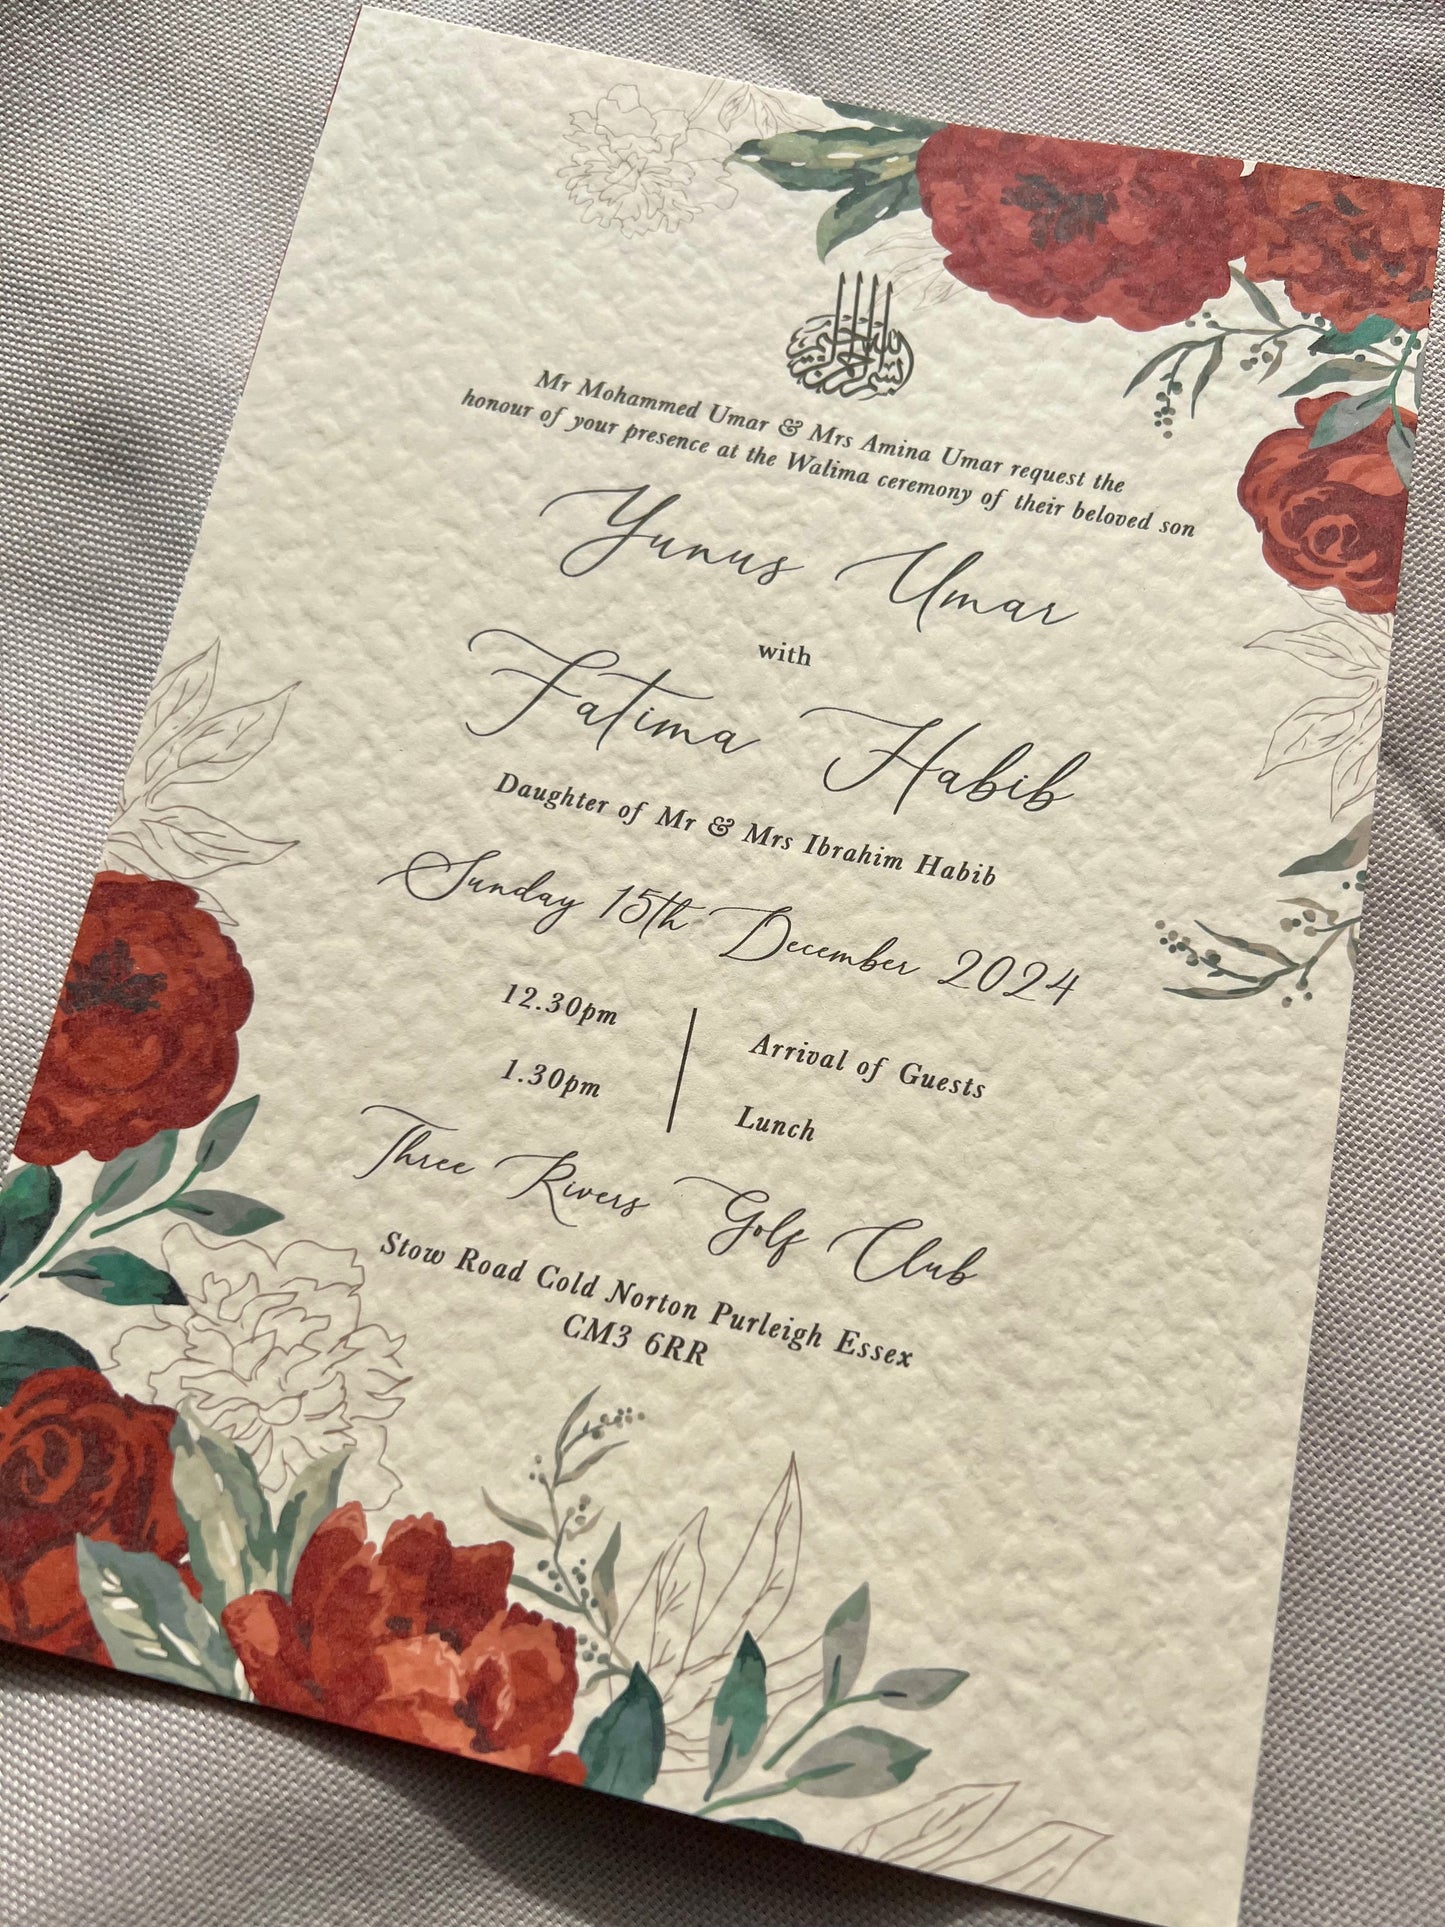 Mr Mohammed Umar & Mrs Amina Umar request the
honour of your presence at the Walima ceremony of their beloved son
Yunus Umar
with
Fatima Habib
Daughter of Mr & Mrs Ibrahim Habib
Sunday 15th December 2024
12.30pm Arrival of Guests
1.30pm Lunch
Three Rivers Golf Club
Stow Road Cold Norton Purleigh Essex
CM3 6RR